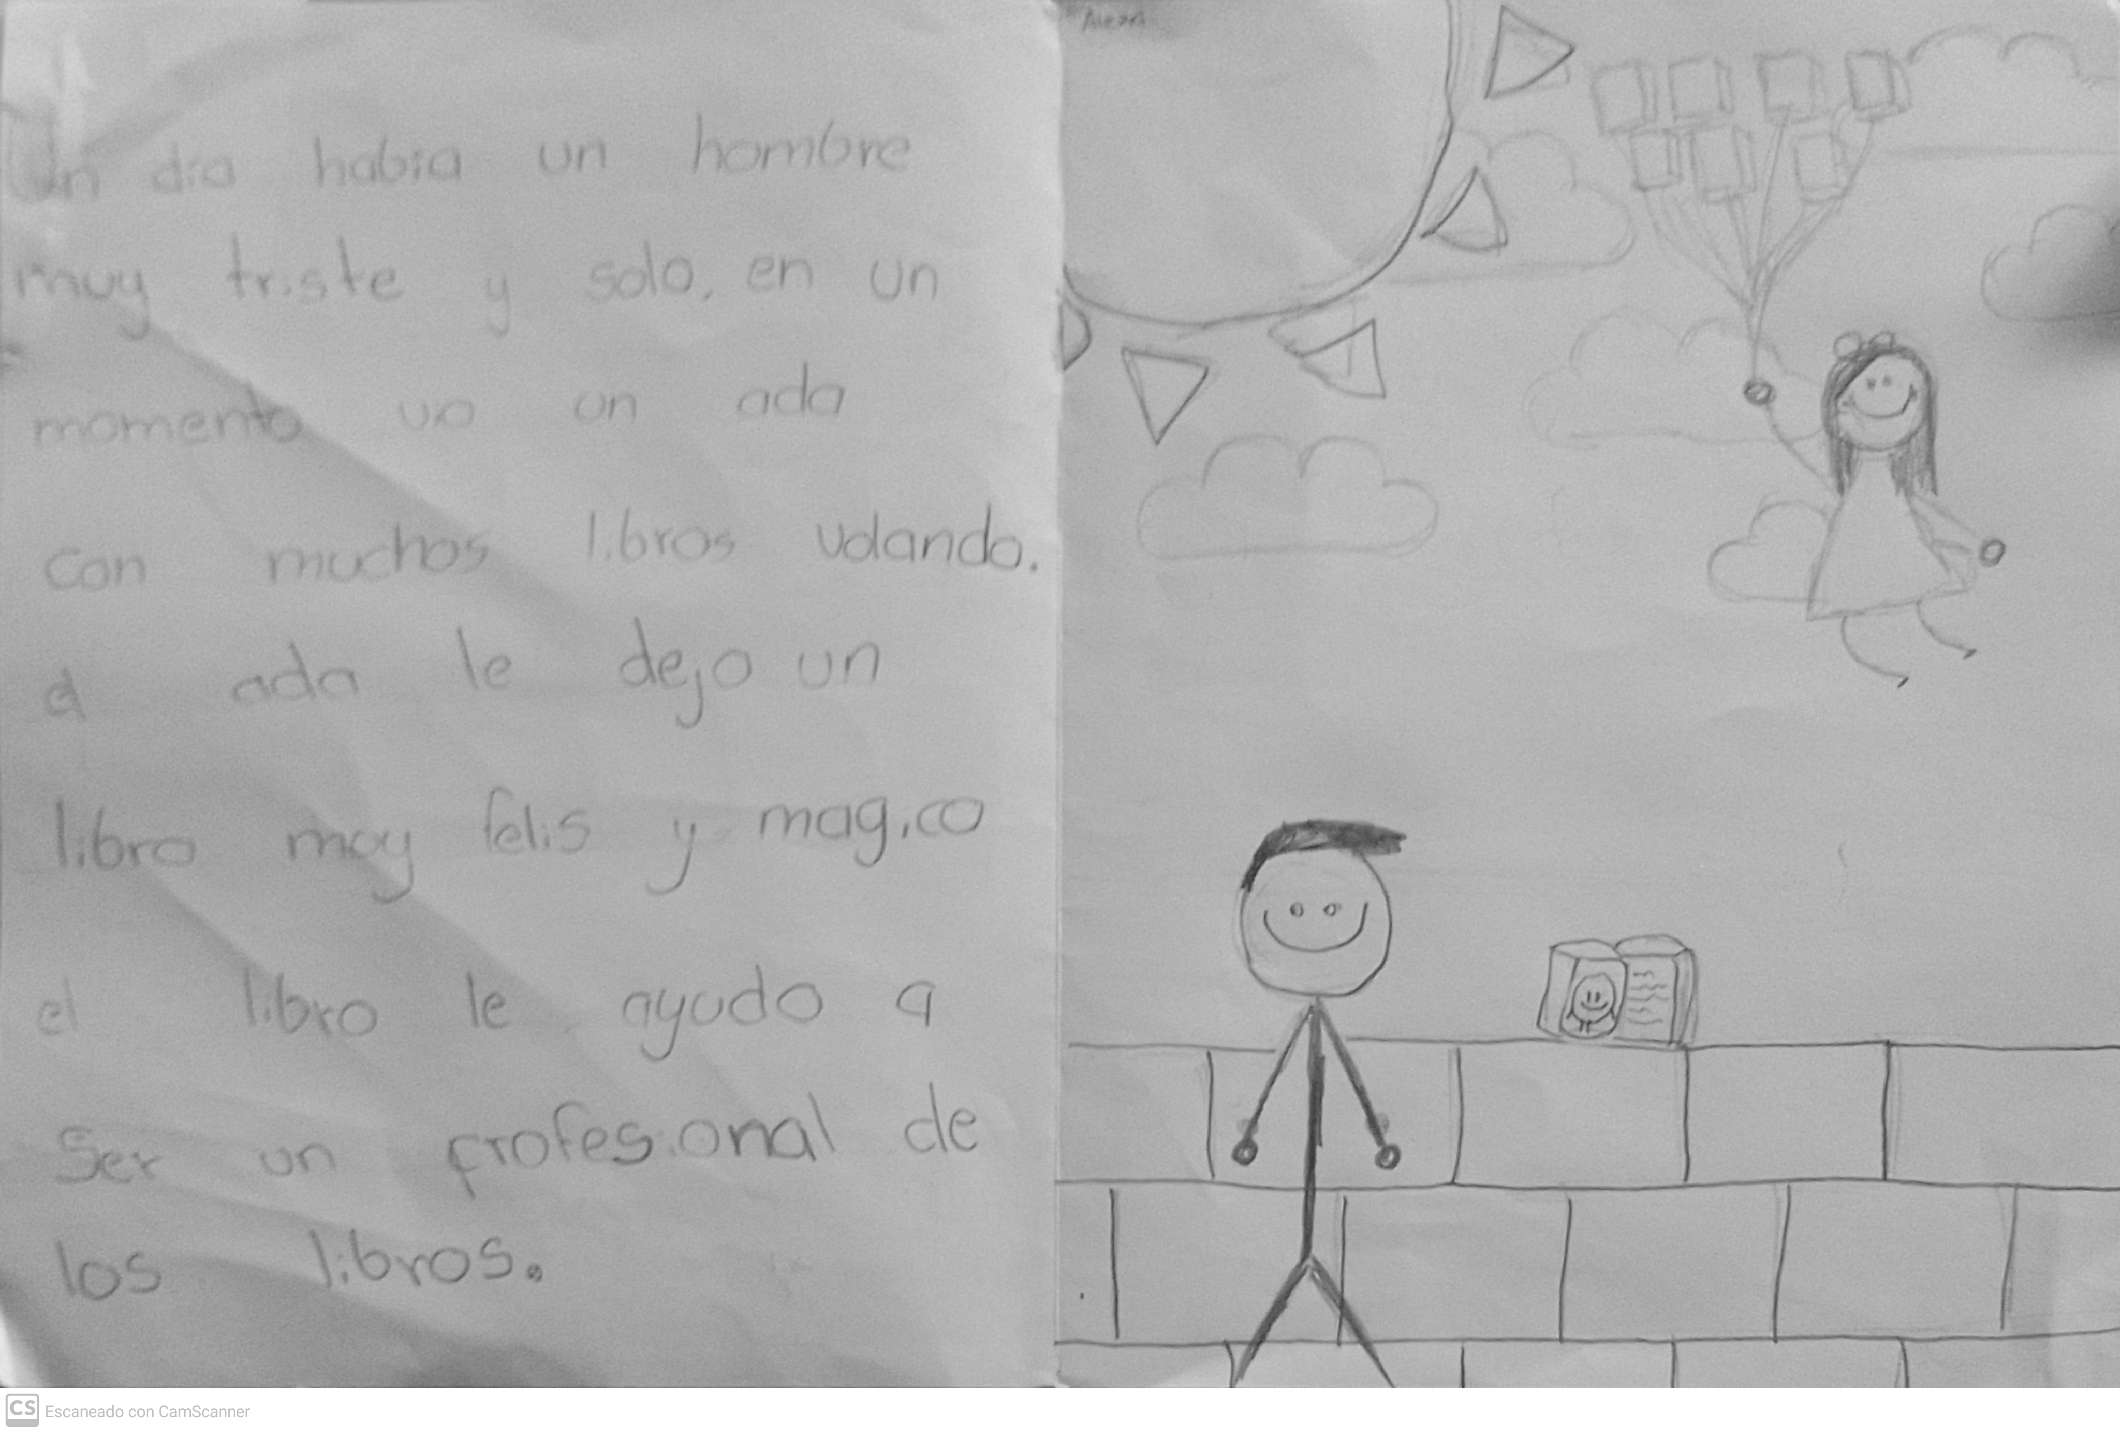 Un dia habia un hombre
muy triste y solo, en un
momento vio un ada
con muchos libros volando.
el ada le dejo un
libro muy felis y magico
el libro le ayudo a
Ser un profesional de
los libros.
CS Escaneado con CamScanner